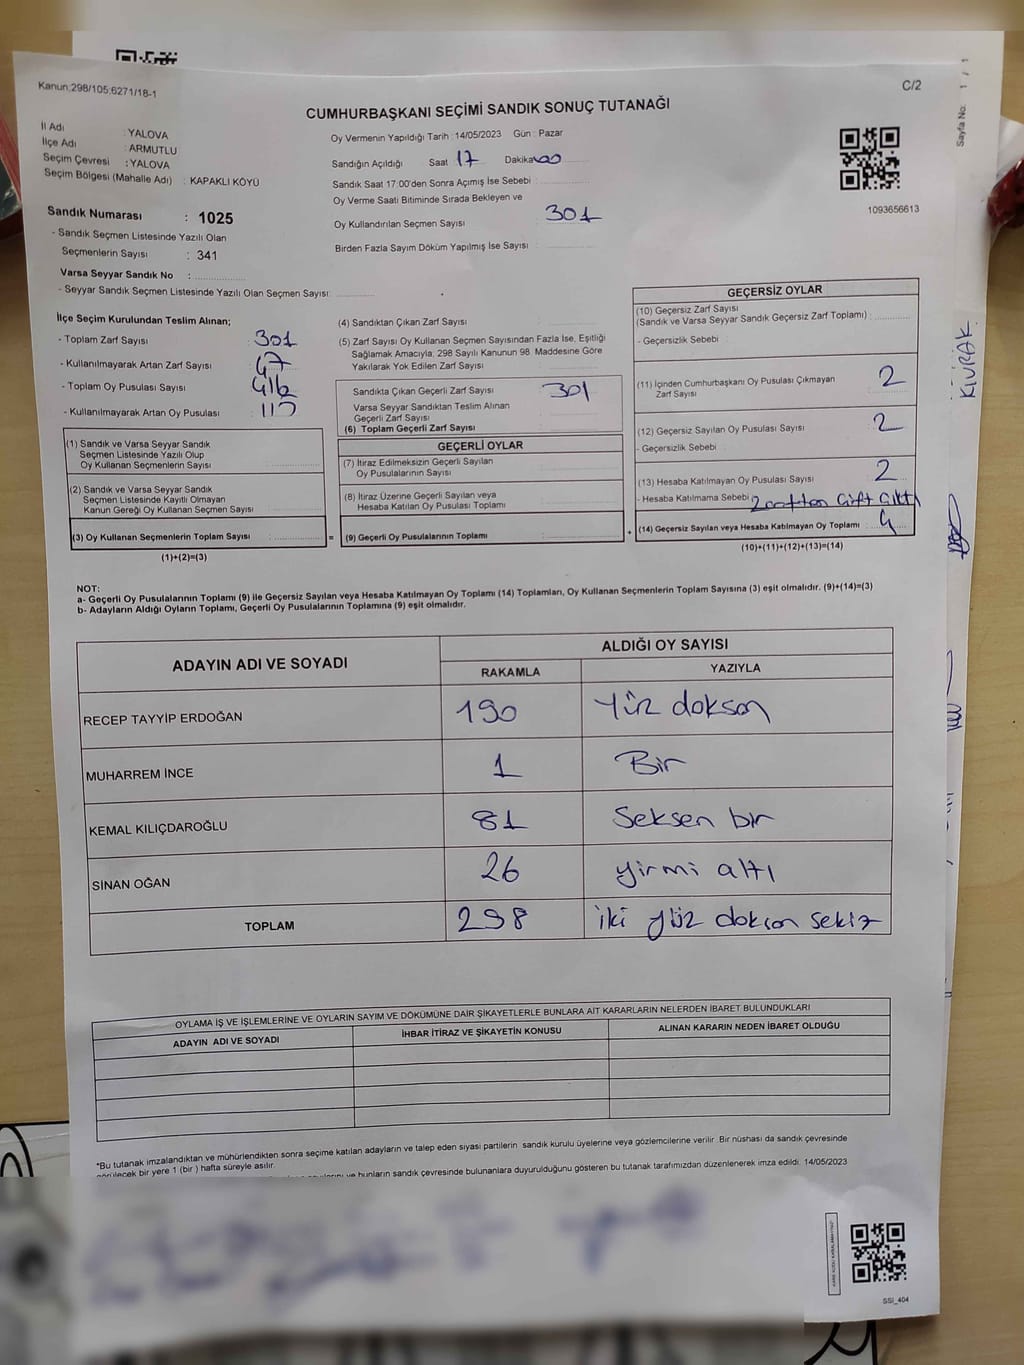 Kanun:298/105:6271/18-1
C/2
Sayfa No: 1 / 1
CUMHURBAŞKANI SEÇİMİ SANDIK SONUÇ TUTANAĞI
İl Adı : YALOVA
İlçe Adı : ARMUTLU
Seçim Çevresi : YALOVA
Seçim Bölgesi (Mahalle Adı) : KAPAKLI KÖYÜ
Sandık Numarası : 1025
- Sandık Seçmen Listesinde Yazılı Olan
Seçmenlerin Sayısı : 341
Varsa Seyyar Sandık No :
- Seyyar Sandık Seçmen Listesinde Yazılı Olan Seçmen Sayısı:
Oy Vermenin Yapıldığı Tarih : 14/05/2023 Gün : Pazar
Sandığın Açıldığı Saat 17 Dakika 00
Sandık Saat 17:00'den Sonra Açımış İse Sebebi :
Oy Verme Saati Bitiminde Sırada Bekleyen ve
Oy Kullandırılan Seçmen Sayısı : 301
Birden Fazla Sayım Döküm Yapılmış İse Sayısı :
1093656613
İlçe Seçim Kurulundan Teslim Alınan;
- Toplam Zarf Sayısı : 301
- Kullanılmayarak Artan Zarf Sayısı : 47
- Toplam Oy Pusulası Sayısı :
- Kullanılmayarak Artan Oy Pusulası :
(1) Sandık ve Varsa Seyyar Sandık
Seçmen Listesinde Yazılı Olup
Oy Kullanan Seçmenlerin Sayısı :
(2) Sandık ve Varsa Seyyar Sandık
Seçmen Listesinde Kayıtlı Olmayan
Kanun Gereği Oy Kullanan Seçmen Sayısı :
(3) Oy Kullanan Seçmenlerin Toplam Sayısı :
(1)+(2)=(3)
(4) Sandıktan Çıkan Zarf Sayısı :
(5) Zarf Sayısı Oy Kullanan Seçmen Sayısından Fazla İse, Eşitliği
Sağlamak Amacıyla, 298 Sayılı Kanunun 98. Maddesine Göre
Yakılarak Yok Edilen Zarf Sayısı :
Sandıkta Çıkan Geçerli Zarf Sayısı : 301
Varsa Seyyar Sandıktan Teslim Alınan
Geçerli Zarf Sayısı :
(6) Toplam Geçerli Zarf Sayısı :
GEÇERLİ OYLAR
(7) İtiraz Edilmeksizin Geçerli Sayılan
Oy Pusulalarının Sayısı :
(8) İtiraz Üzerine Geçerli Sayılan veya
Hesaba Katılan Oy Pusulaları Toplamı :
= (9) Geçerli Oy Pusulalarının Toplamı :
GEÇERSİZ OYLAR
(10) Geçersiz Zarf Sayısı
(Sandık ve Varsa Seyyar Sandık Geçersiz Zarf Toplamı) :
- Geçersizlik Sebebi :
(11) İçinden Cumhurbaşkanı Oy Pusulası Çıkmayan
Zarf Sayısı : 2
(12) Geçersiz Sayılan Oy Pusulası Sayısı : 2
- Geçersizlik Sebebi :
(13) Hesaba Katılmayan Oy Pusulası Sayısı : 2
- Hesaba Katılmama Sebebi : 2 zarftan çift çıktı
+ (14) Geçersiz Sayılan veya Hesaba Katılmayan Oy Toplamı : 4
(10)+(11)+(12)+(13)=(14)
KIVRAK
NOT:
a- Geçerli Oy Pusulalarının Toplamı (9) ile Geçersiz Sayılan veya Hesaba Katılmayan Oy Toplamı (14) Toplamları, Oy Kullanan Seçmenlerin Toplam Sayısına (3) eşit olmalıdır. (9)+(14)=(3)
b- Adayların Aldığı Oyların Toplamı, Geçerli Oy Pusulalarının Toplamına (9) eşit olmalıdır.
ADAYIN ADI VE SOYADI
ALDIĞI OY SAYISI
RAKAMLA YAZIYLA
RECEP TAYYİP ERDOĞAN 190 Yüz doksan
MUHARREM İNCE 1 Bir
KEMAL KILIÇDAROĞLU 81 Seksen bir
SİNAN OĞAN 26 yirmi altı
TOPLAM 298 iki yüz doksan sekiz
OYLAMA İŞ VE İŞLEMLERİNE VE OYLARIN SAYIM VE DÖKÜMÜNE DAİR ŞİKAYETLERLE BUNLARA AİT KARARLARIN NELERDEN İBARET BULUNDUKLARI
ADAYIN ADI VE SOYADI İHBAR İTİRAZ VE ŞİKAYETİN KONUSU ALINAN KARARIN NEDEN İBARET OLDUĞU
*Bu tutanak imzalandıktan ve mühürlendikten sonra seçime katılan adayların ve talep eden siyasi partilerin sandık kurulu üyelerine veya gözlemcilerine verilir. Bir nüshası da sandık çevresinde
görülecek bir yere 1 (bir ) hafta süreyle asılır.
ve bunların sandık çevresinde bulunanlara duyurulduğunu gösteren bu tutanak tarafımızdan düzenlenerek imza edildi. 14/05/2023
SSİ_404